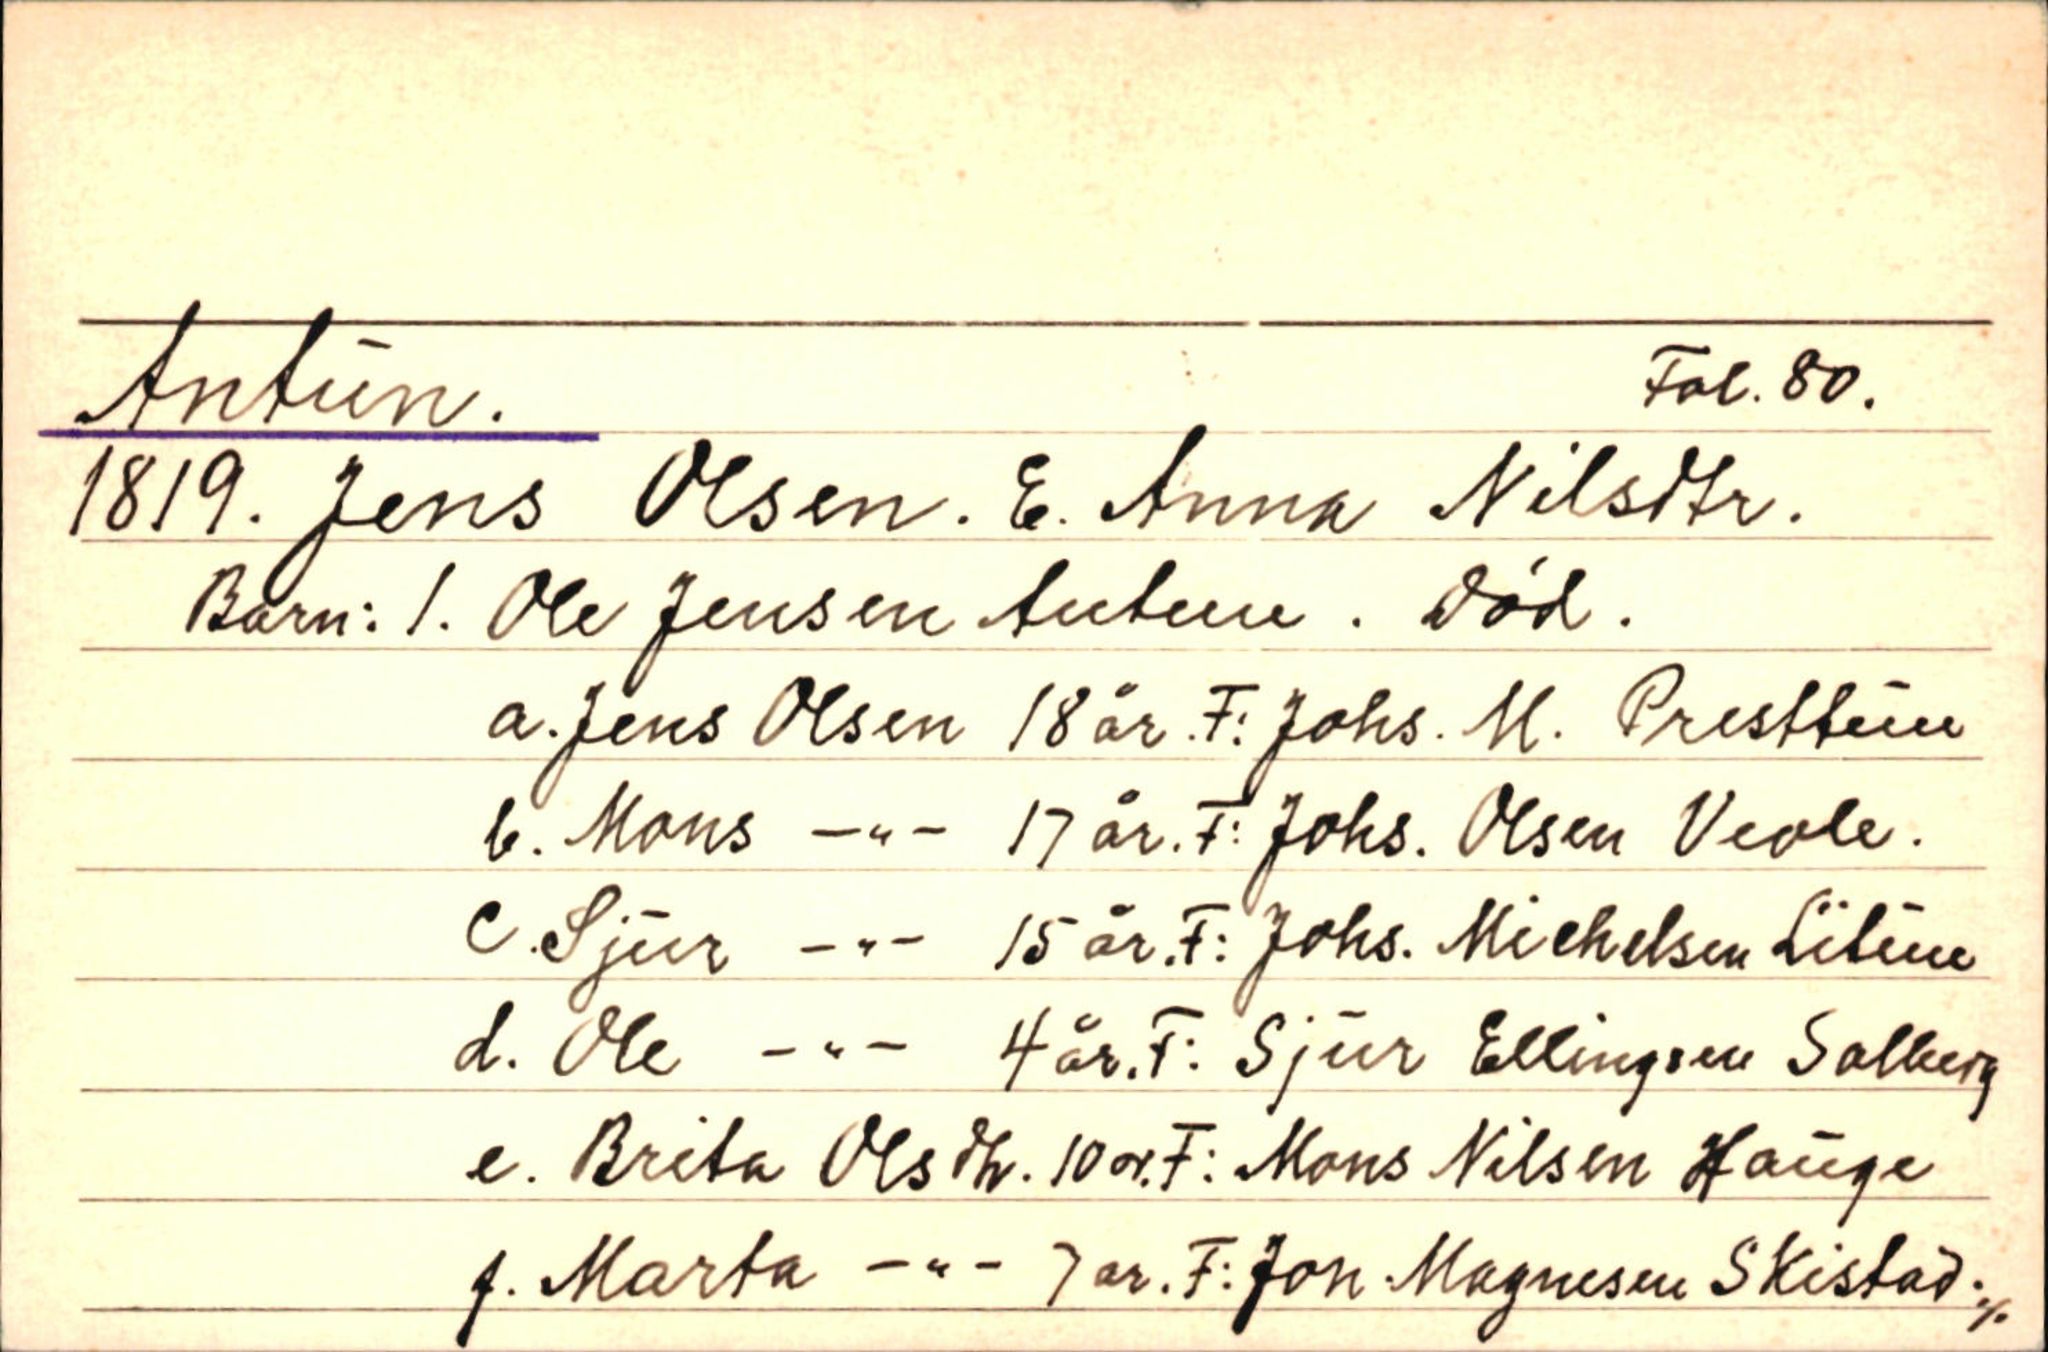 Antun. Fol. 80.
1819. Jens Olsen. E. Anna Nilsdtr.
Barn: 1. Ole Jensen Antun. Död.
a. Jens Olsen 18 år. F: Johs. M. Presttun
b. Mons -"- 17 år. F: Johs. Olsen Veole.
c. Sjur -"- 15 år. F: Johs. Michelsen Litun
d. Ole -"- 4 år. F: Sjur Ellingsen Solberg
e. Brita Olsdtr. 10 år. F: Mons Nilsen Hauge
f. Marta -"- 7 ar. F: Jon Magnesen Skistad ./.